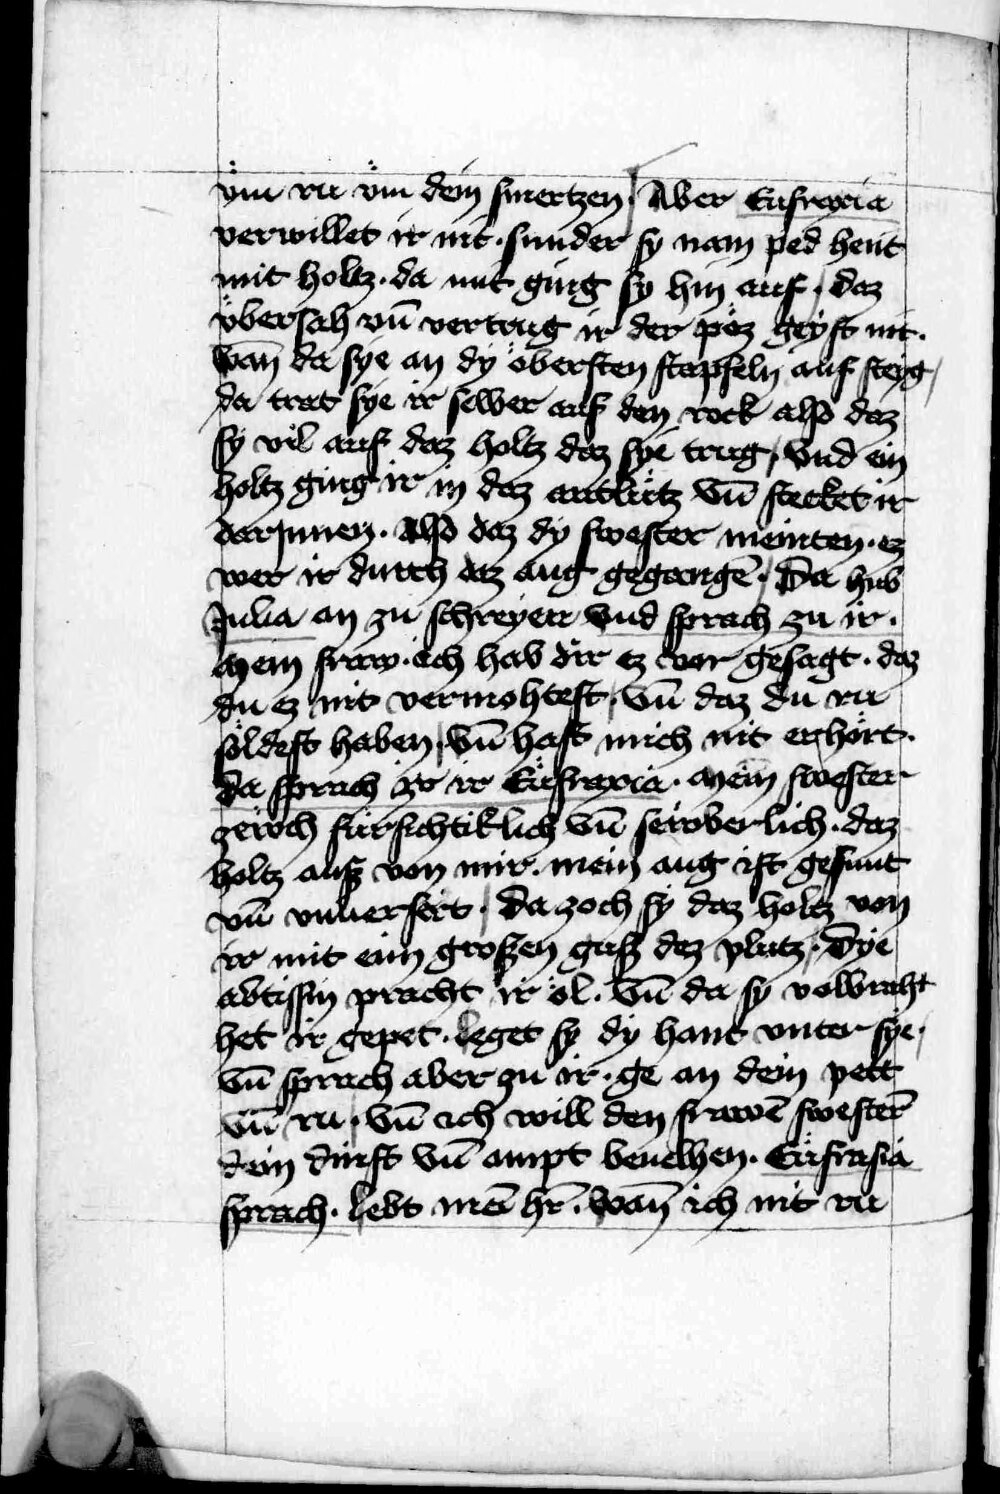 üm ru üm dein smertzen. Aber Eufraxia
verwillet ir nit. sunder sy nam ped hent
mit holtz. da mit ging sy hin auf, daz
übersah vn̄ vertrug ir der pöz geyst nit.
wan̄ da sye an dy öbersten stapfeln auf steyg,
da trat sye ir selber auf den rock also daz
sy vil auf daz holtz daz sye trug, vnd ein
holtz ging ir in daz antlütz vn̄ stecket ir
darJnnen. Also daz dy swester meinten. ez
wer ir durch daz aug gegangē. Da hub
Julia an zu schreyen vnd sprach zu ir.
mein fraw. ich hab dir ez vor gesagt. daz
du ez nit vermohtest, vn̄ daz du ru
söldest haben, vn̄ hast mich nit erhört.
Da sprach zu ir Eufraxia. mein swester
zewch fürsichtiklich vn̄ sewberlich. daz
holtz ausz von mir. mein aug ist gesunt
vn̄ vnuersert. Da zoch sy daz holtz von
ir mit eim groszen gusz dez plutz. Dye
abtissin pracht ir öl. vn̄ da sy volbraht
het ir gepet. leget sy dy hant vnter sye,
vn̄ sprach aber zu ir. ge an dein pett
vn̄ ru, vn̄ ich will den frawē swesterꝰ
dein dinst vn̄ ampt beuelhen. Eüfrasia
sprach. lebt mein hr̄. wan̄ ich nit ru